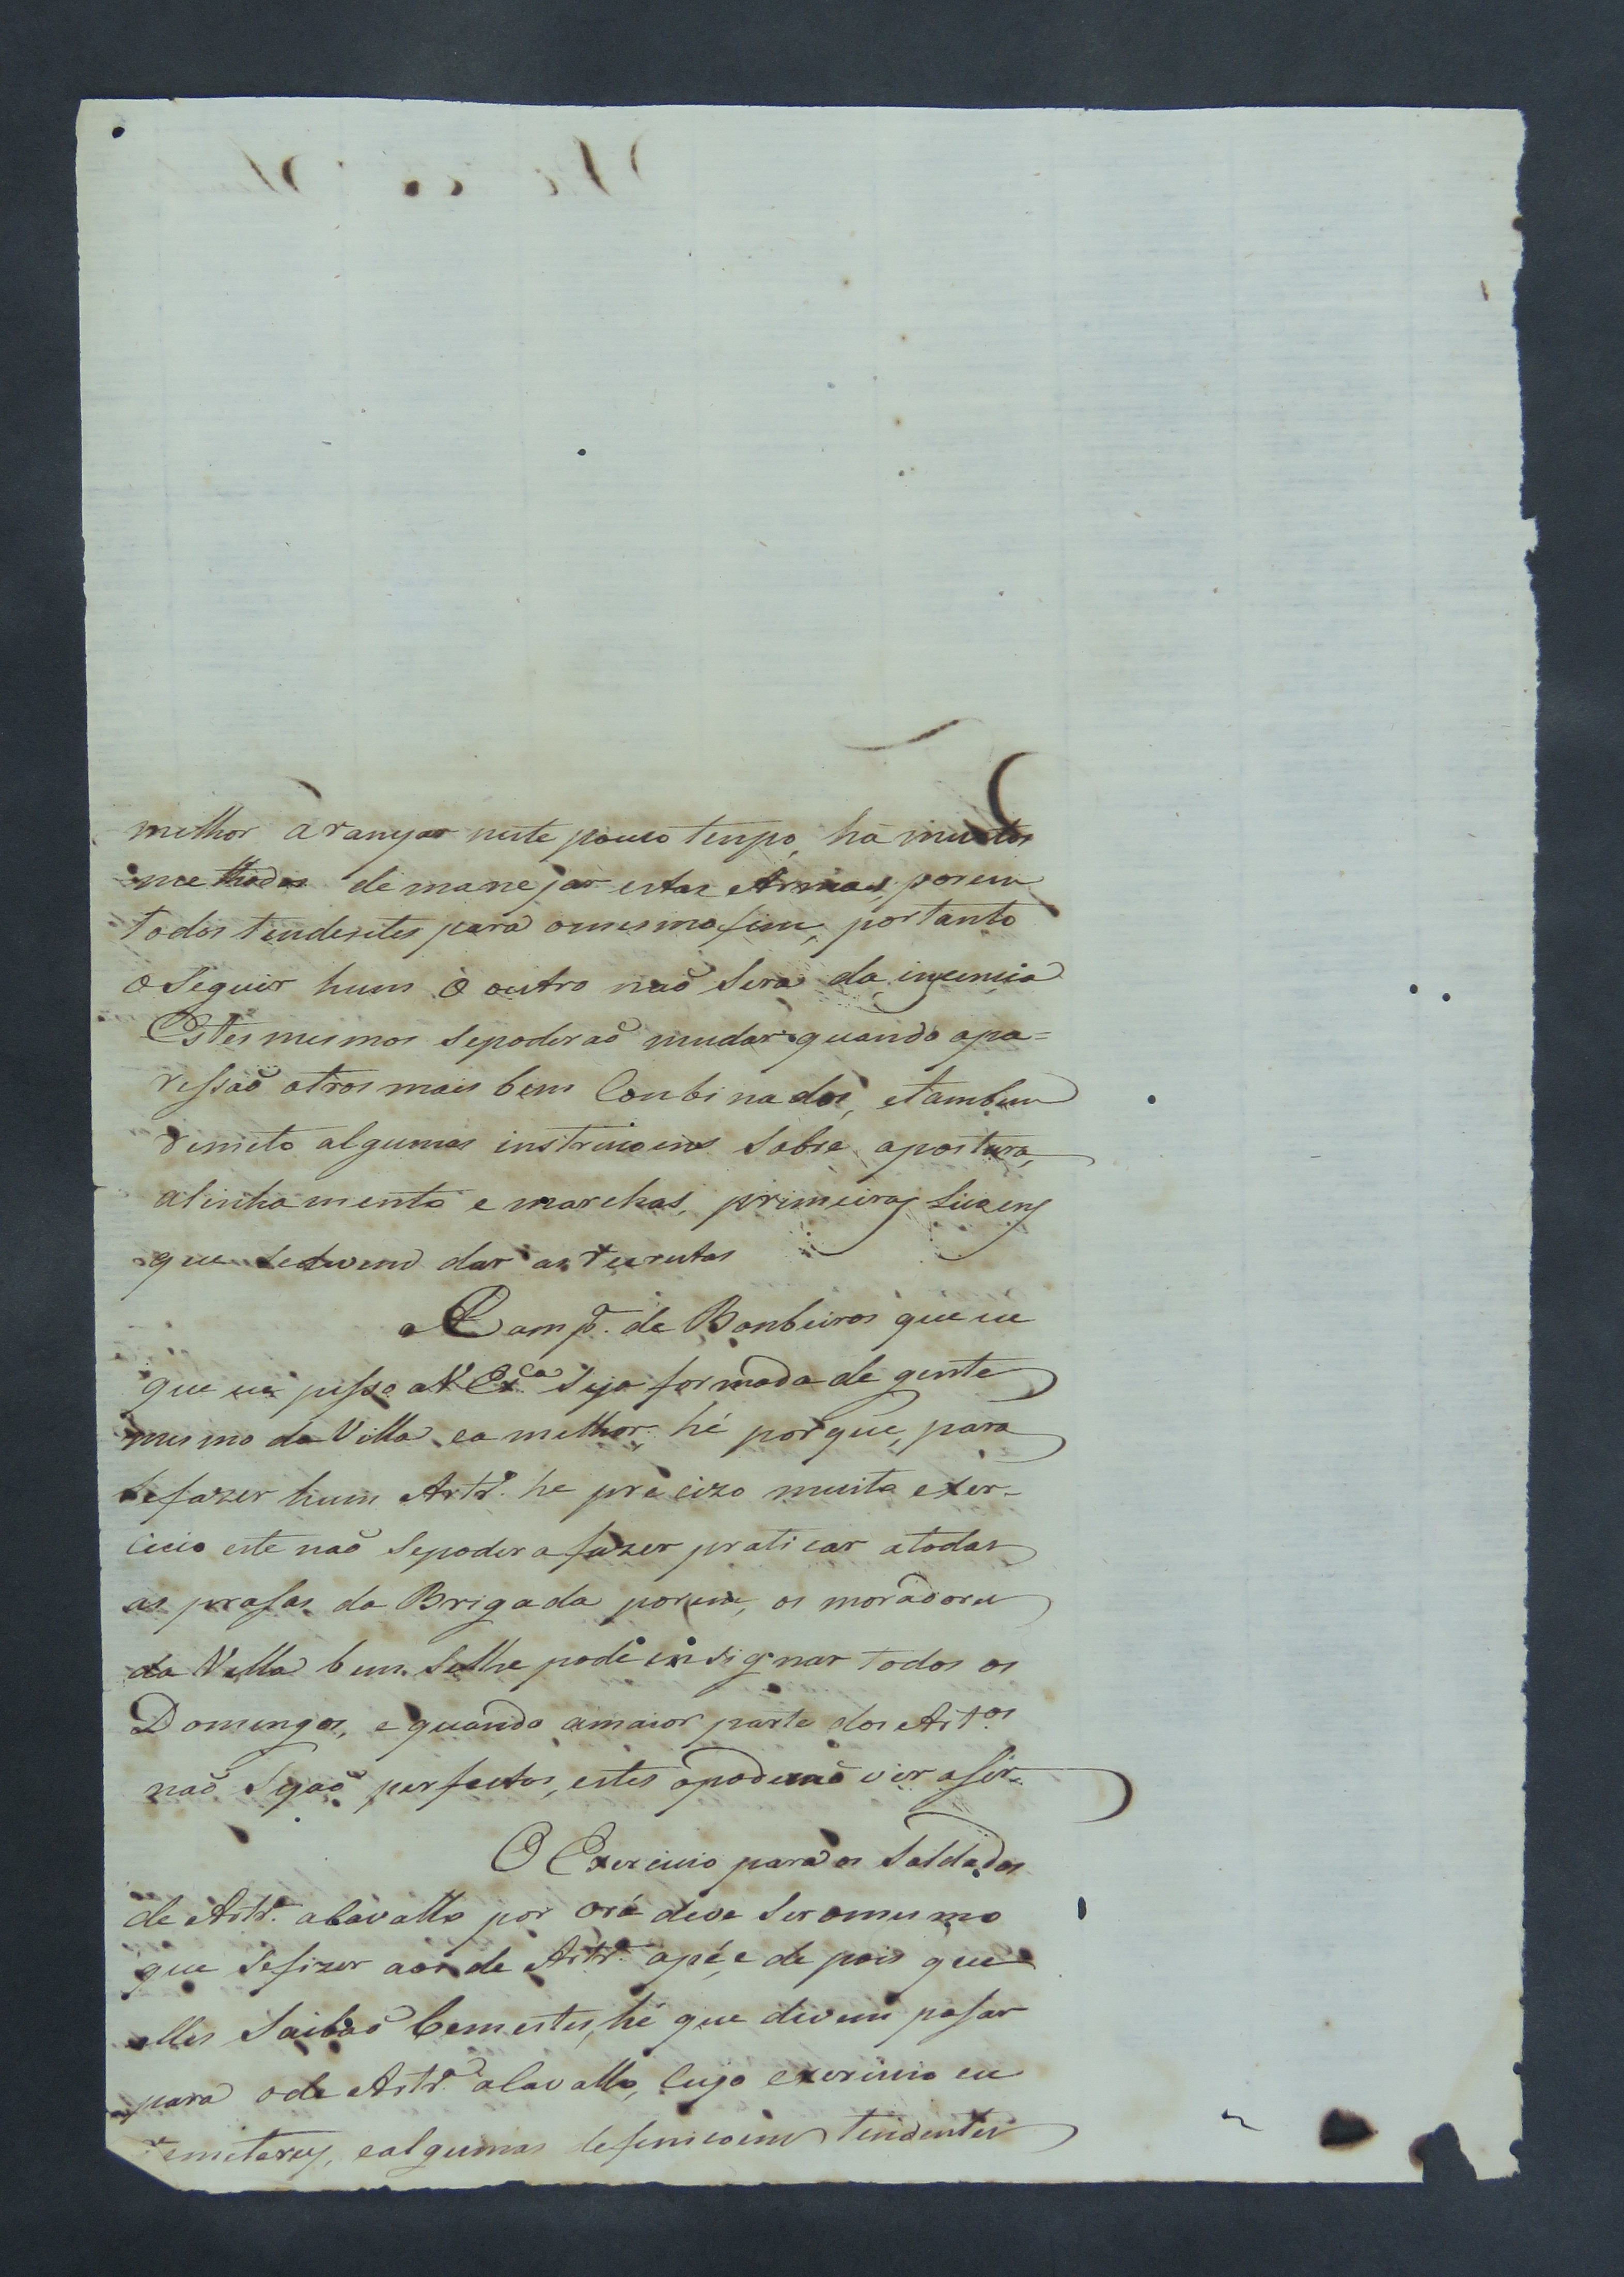 melhor aranyar neste pouco tenpo, há muitos
methodos de manejar estas Armas, porem
todos tendentes para omesmo fim, portanto
o Seguir hum ò outro naõ Sera da incumcia
Estes mesmos sepoderaõ mudar quando apa=
ressaõ otros mais bem Conbinados, etambem
remeto algumas instrucoens Sobre apostura,
alinhamento e marchas, primeiras Licoens
que sedevem dar as recrutas
a Comp.ª de Bonbeiros que eu
que eu pesso a V Ex.ca Seja formada de gente
mesmo da Villa ea melhor, hé porque, para
se fazer hum Artr.º he precizo muito exer-
cicio este naõ Sepodera fazer praticar atodas
as prasas da Brigada porem, os moradores
da Villa bem Selhe pode insignar todos os
Domingos, e quando amaior parte dos Art.os
naõ Sejaõ perfeitos, estes opoderaõ vir aser.
O Exercicio para os Soldados
de Artr.ª aCavallo por ora deve Ser omesmo
que Sefizer aos de Artr.ª apé, e de pois que
elles Saibaõ bem estes, hé que devem pasar
para ode Artr.ª aCavallo, Cujo exercicio eu
remeterey, ealgumas defenicoens tendentes